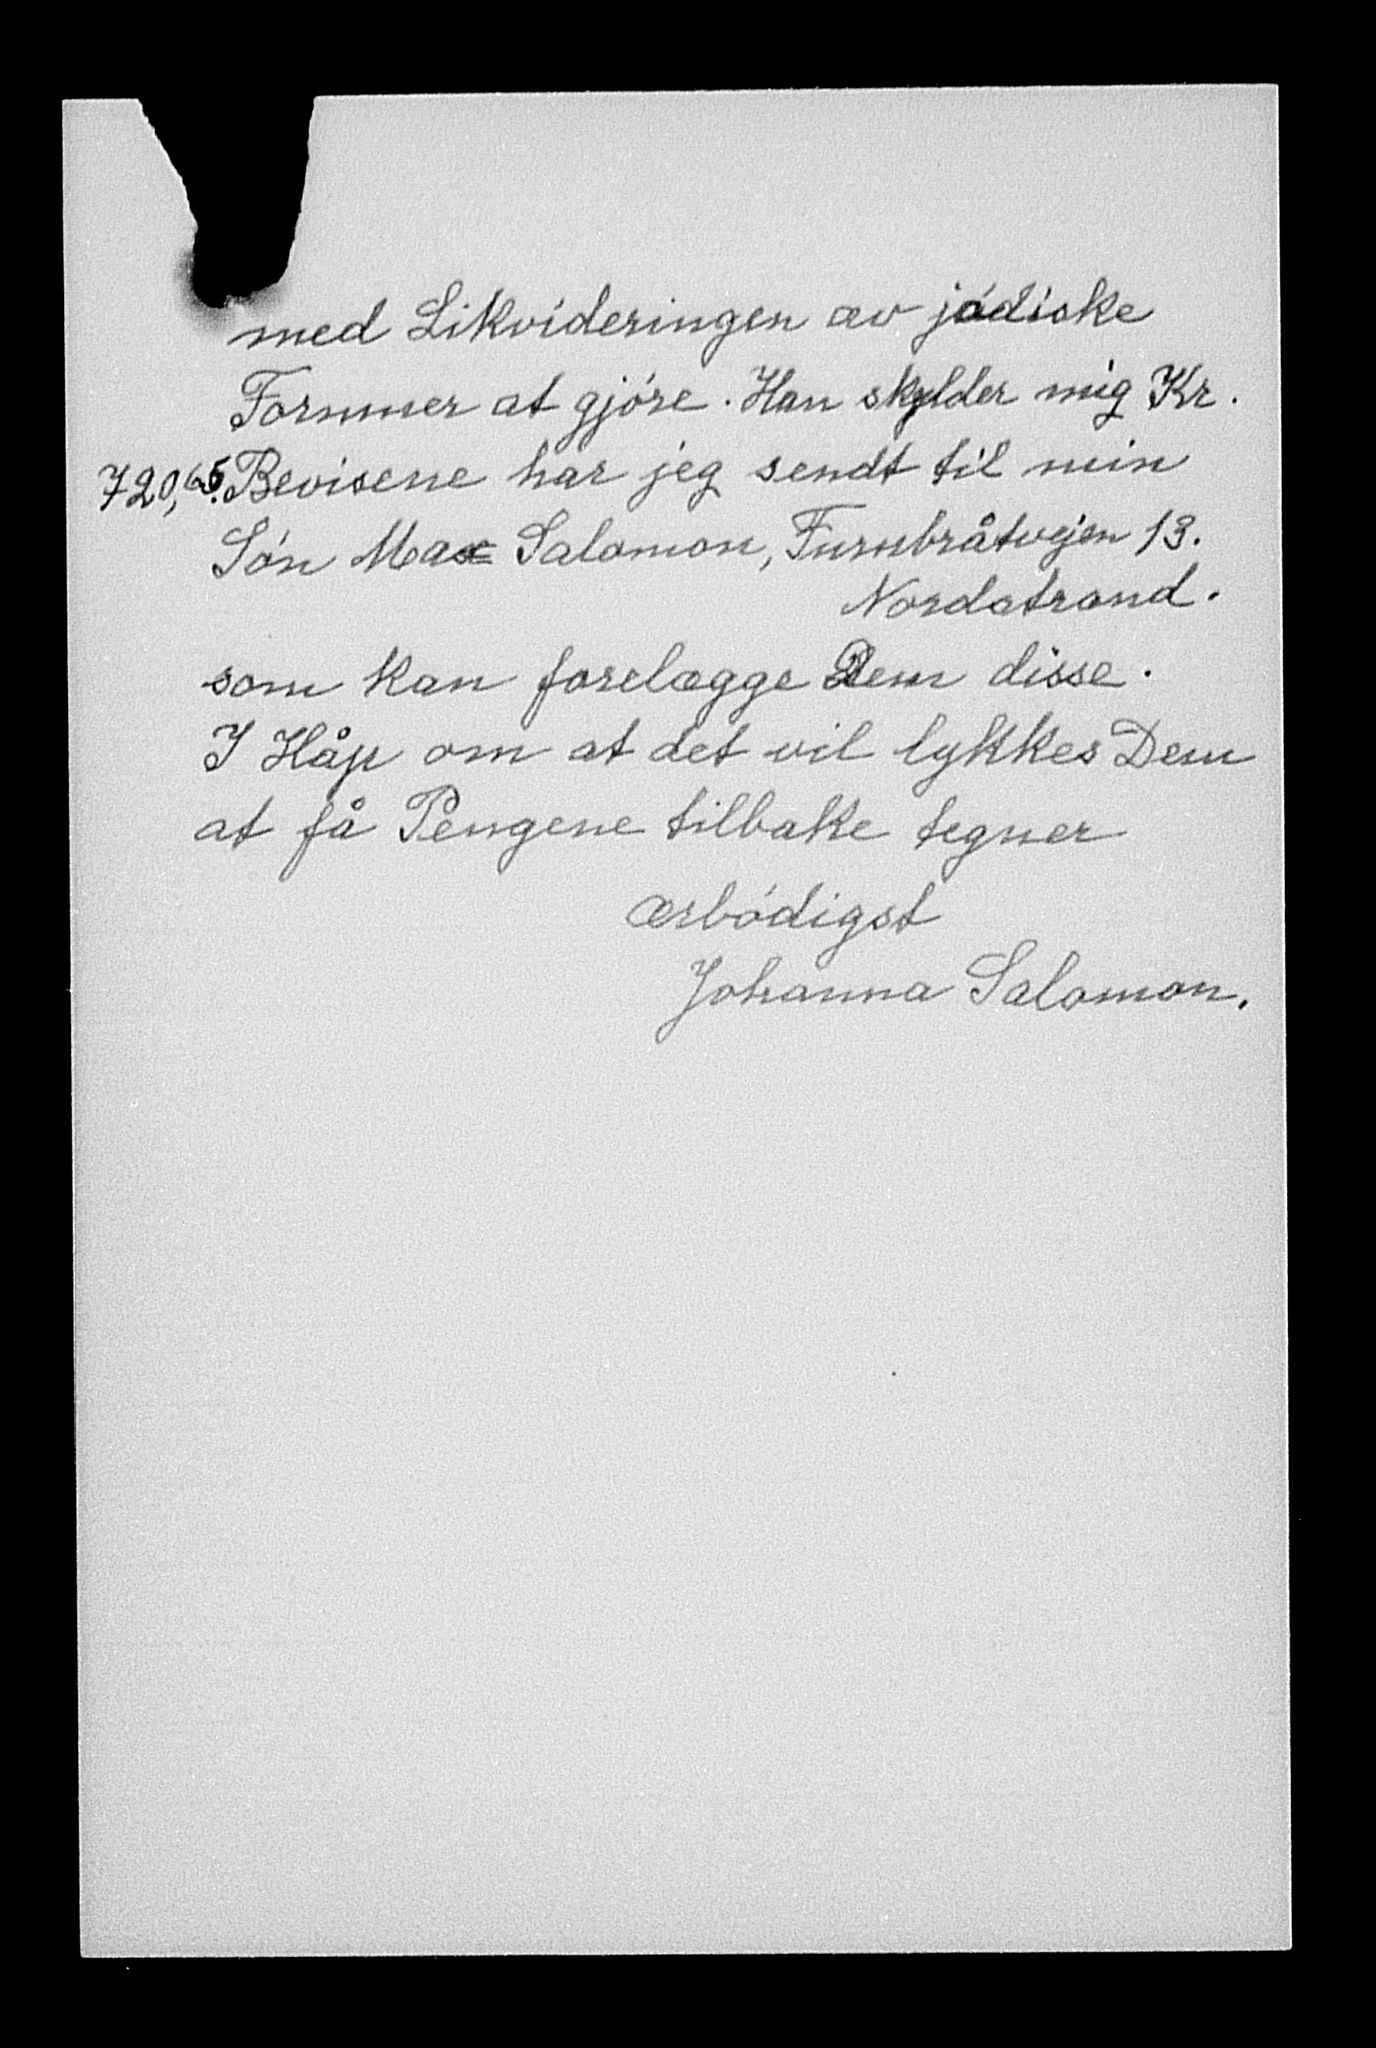 med Likvideringen av jódiske
Formuer at gjóre. Han skylder mig Kr.
720,65. Bevisene har jeg sendt til min
Són Max Salomon, Furubråtvejen 13.
Nordstrand.
som kan forelægge Dem disse.
I Håp om at det vil lykkes Dem
at få Pengene tilbake tegner
ærbódigst
Johanna Salomon.